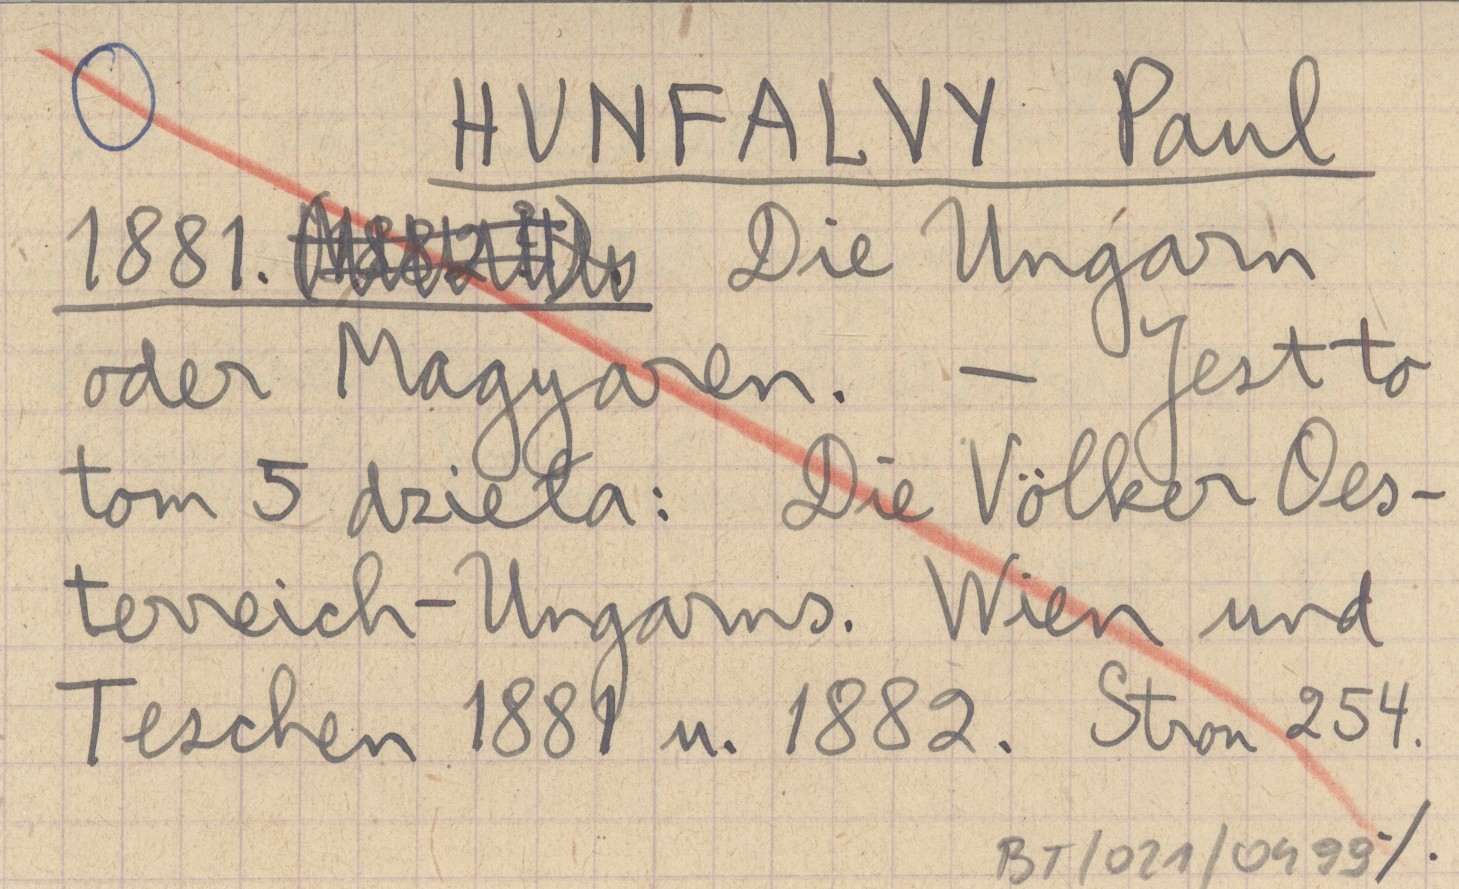 HUNFALVY Paul
1881. Die Ungarn
oder Magyaren. — Jest to
tom 5 dzieła: Die Völker Oes-
terreich-Ungarns. Wien und
Teschen 1881 u. 1882. Stron 254.
BT/021/0499 ·/.